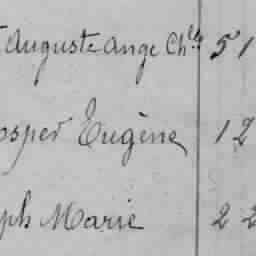 Auguste Ange Ch^les 51
osper Eugène 12
ph Marie 22